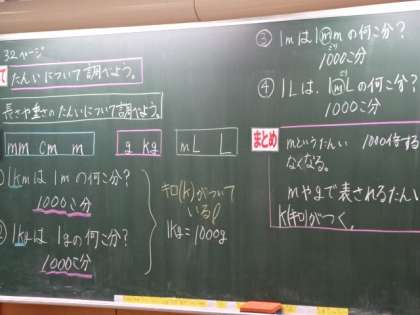 32ページ
て
たんいについて調べよう。
長さや重さのたんいについて調べよう。
mm cm m
g kg
mL L
① 1kmは1mの何こ分?
1000こ分
② 1kgは1gの何こ分?
1000こ分
キロ(k)がついている
1kg=1000g
③ 1mは1mmの何こ分?
1000こ分
④ 1Lは、1mLの何こ分?
1000こ分
まとめ
mというたんい 1000倍する
なくなる。
mやgで表されるたんい
k(キロ)がつく。